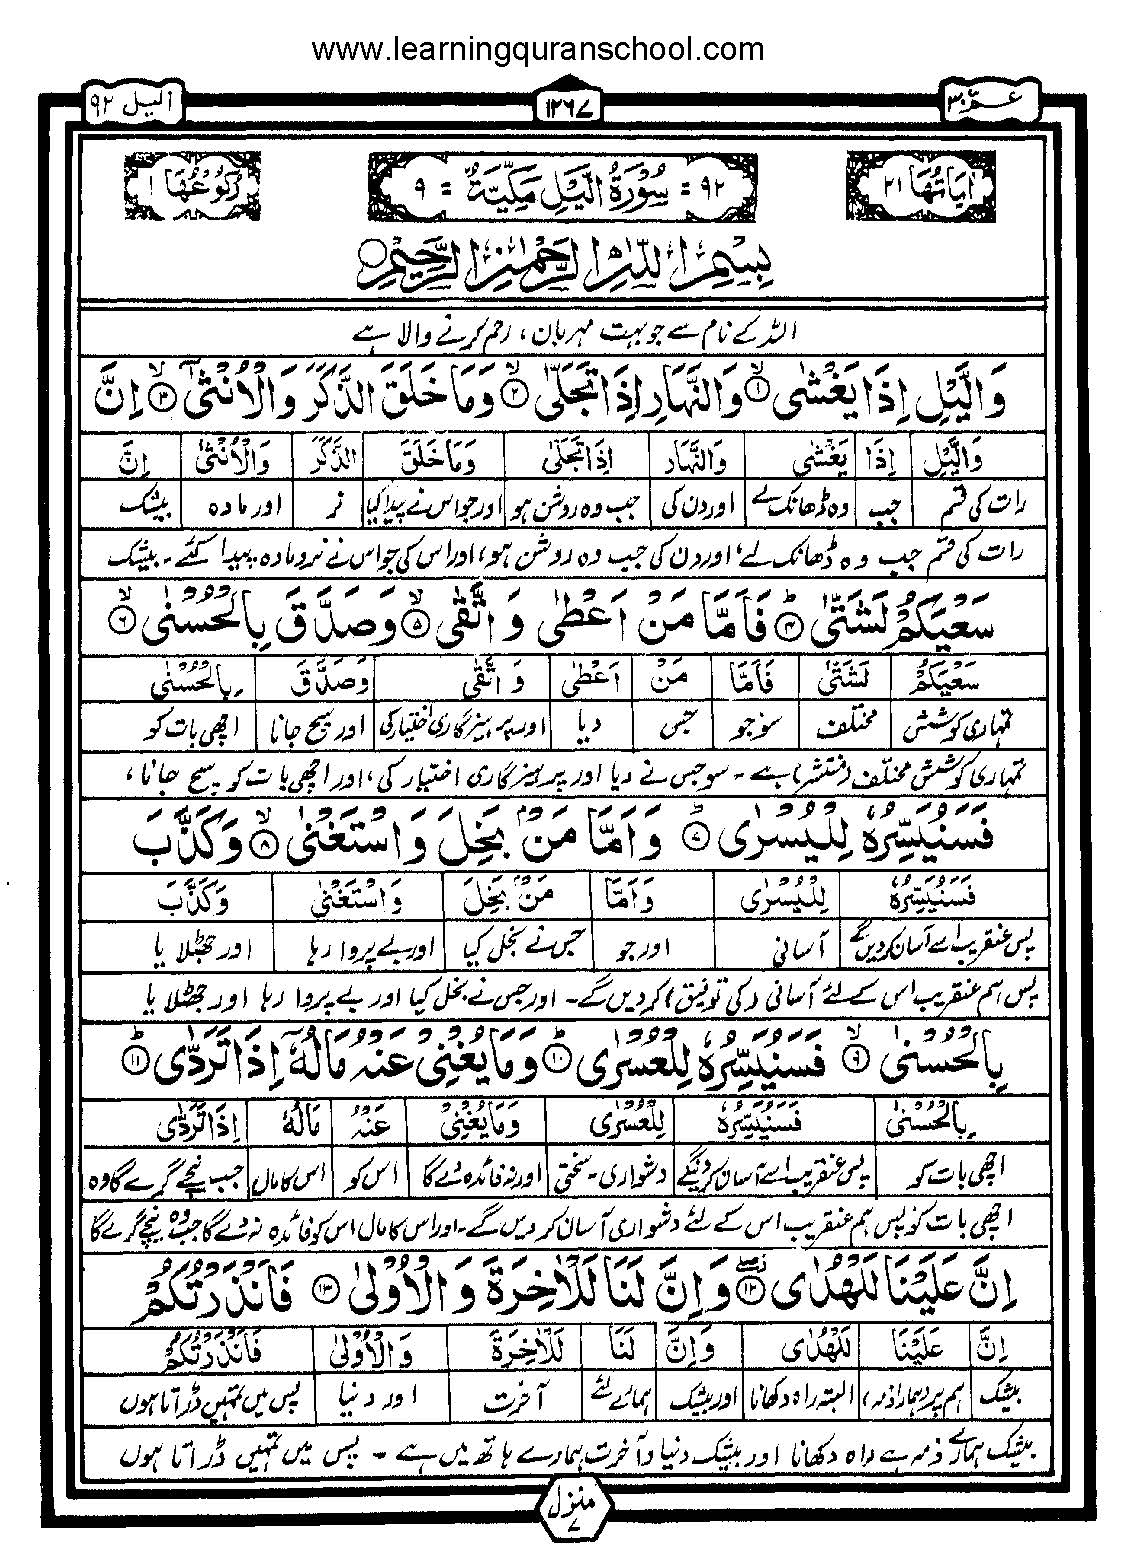 www.learningquranschool.com
عمّ ۳۰
۱۲۶۷
اليل ۹۲
اٰيَاتُهَا ۲۱
۹۲ = سُوْرَةُ الَّيْلِ مَكِّيَّةٌ = ۹
رُكُوْعُهَا ۱
بِسْمِ اللّٰهِ الرَّحْمٰنِ الرَّحِيْمِ
اللہ کے نام سے جو بہت مہربان، رحم کرنے والا ہے
وَالَّيْلِ اِذَا يَغْشٰى ۱ وَالنَّهَارِ اِذَا تَجَلّٰى ۲ وَمَا خَلَقَ الذَّكَرَ وَالْاُنْثٰٓى ۳ اِنَّ
وَالَّيْلِ اِذَا يَغْشٰى وَالنَّهَارِ اِذَا تَجَلّٰى وَمَا خَلَقَ الذَّكَرَ وَالْاُنْثٰٓى اِنَّ
رات کی قسم جب وہ ڈھانک لے اور دن کی جب وہ روشن ہو اور جو اس نے پیدا کیا نر اور مادہ بیشک
رات کی قسم جب وہ ڈھانک لے، اور دن کی جب وہ روشن ہو، اور اس کی جو اس نے نر و مادہ پیدا کئے۔ بیشک
سَعْيَكُمْ لَشَتّٰى ۴ فَاَمَّا مَنْ اَعْطٰى وَاتَّقٰى ۵ وَصَدَّقَ بِالْحُسْنٰى ۶
سَعْيَكُمْ لَشَتّٰى فَاَمَّا مَنْ اَعْطٰى وَاتَّقٰى وَصَدَّقَ بِالْحُسْنٰى
تمہاری کوشش مختلف سو جو جس دیا اور پرہیزگاری اختیار کی اور سچ جانا اچھی بات کو
تمہاری کوشش مختلف (منتشر) ہے۔ سو جس نے دیا اور پرہیزگاری اختیار کی، اور اچھی بات کو سچ جانا،
فَسَنُيَسِّرُهٗ لِلْيُسْرٰى ۷ وَاَمَّا مَنْۢ بَخِلَ وَاسْتَغْنٰى ۸ وَكَذَّبَ
فَسَنُيَسِّرُهٗ لِلْيُسْرٰى وَاَمَّا مَنْۢ بَخِلَ وَاسْتَغْنٰى وَكَذَّبَ
پس عنقریب اسے آسان کردیں گے آسانی اور جو جس نے بخل کیا اور بے پروا رہا اور جھٹلایا
پس ہم عنقریب اس کے لئے آسانی (کی توفیق) کردیں گے۔ اور جس نے بخل کیا اور بے پروا رہا اور جھٹلایا
بِالْحُسْنٰى ۹ فَسَنُيَسِّرُهٗ لِلْعُسْرٰى ۱۰ وَمَا يُغْنِيْ عَنْهُ مَالُهٗٓ اِذَا تَرَدّٰى ۱۱
بِالْحُسْنٰى فَسَنُيَسِّرُهٗ لِلْعُسْرٰى وَمَا يُغْنِيْ عَنْهُ مَالُهٗٓ اِذَا تَرَدّٰى
اچھی بات کو پس عنقریب اسے آسان کردینگے دشواری۔ سختی اور نہ فائدہ دے گا اس کو اس کا مال جب نیچے گرے گا وہ
اچھی بات کو پس ہم عنقریب اس کے لئے دشواری آسان کر دیں گے۔ اور اس کا مال اس کو فائدہ نہ دے گا جب وہ نیچے گرے گا
اِنَّ عَلَيْنَا لَلْهُدٰى ۱۲ وَاِنَّ لَنَا لَلْاٰخِرَةَ وَالْاُوْلٰى ۱۳ فَاَنْذَرْتُكُمْ
اِنَّ عَلَيْنَا لَلْهُدٰى وَاِنَّ لَنَا لَلْاٰخِرَةَ وَالْاُوْلٰى فَاَنْذَرْتُكُمْ
بیشک ہم پر (ہمارا ذمہ) البتہ راہ دکھانا اور بیشک ہمارے لئے آخرت اور دنیا پس میں تمہیں ڈراتا ہوں
بیشک ہمارے ذمہ ہے راہ دکھانا اور بیشک دنیا و آخرت ہمارے ہاتھ میں ہے۔ پس میں تمہیں ڈراتا ہوں
منزل ۷